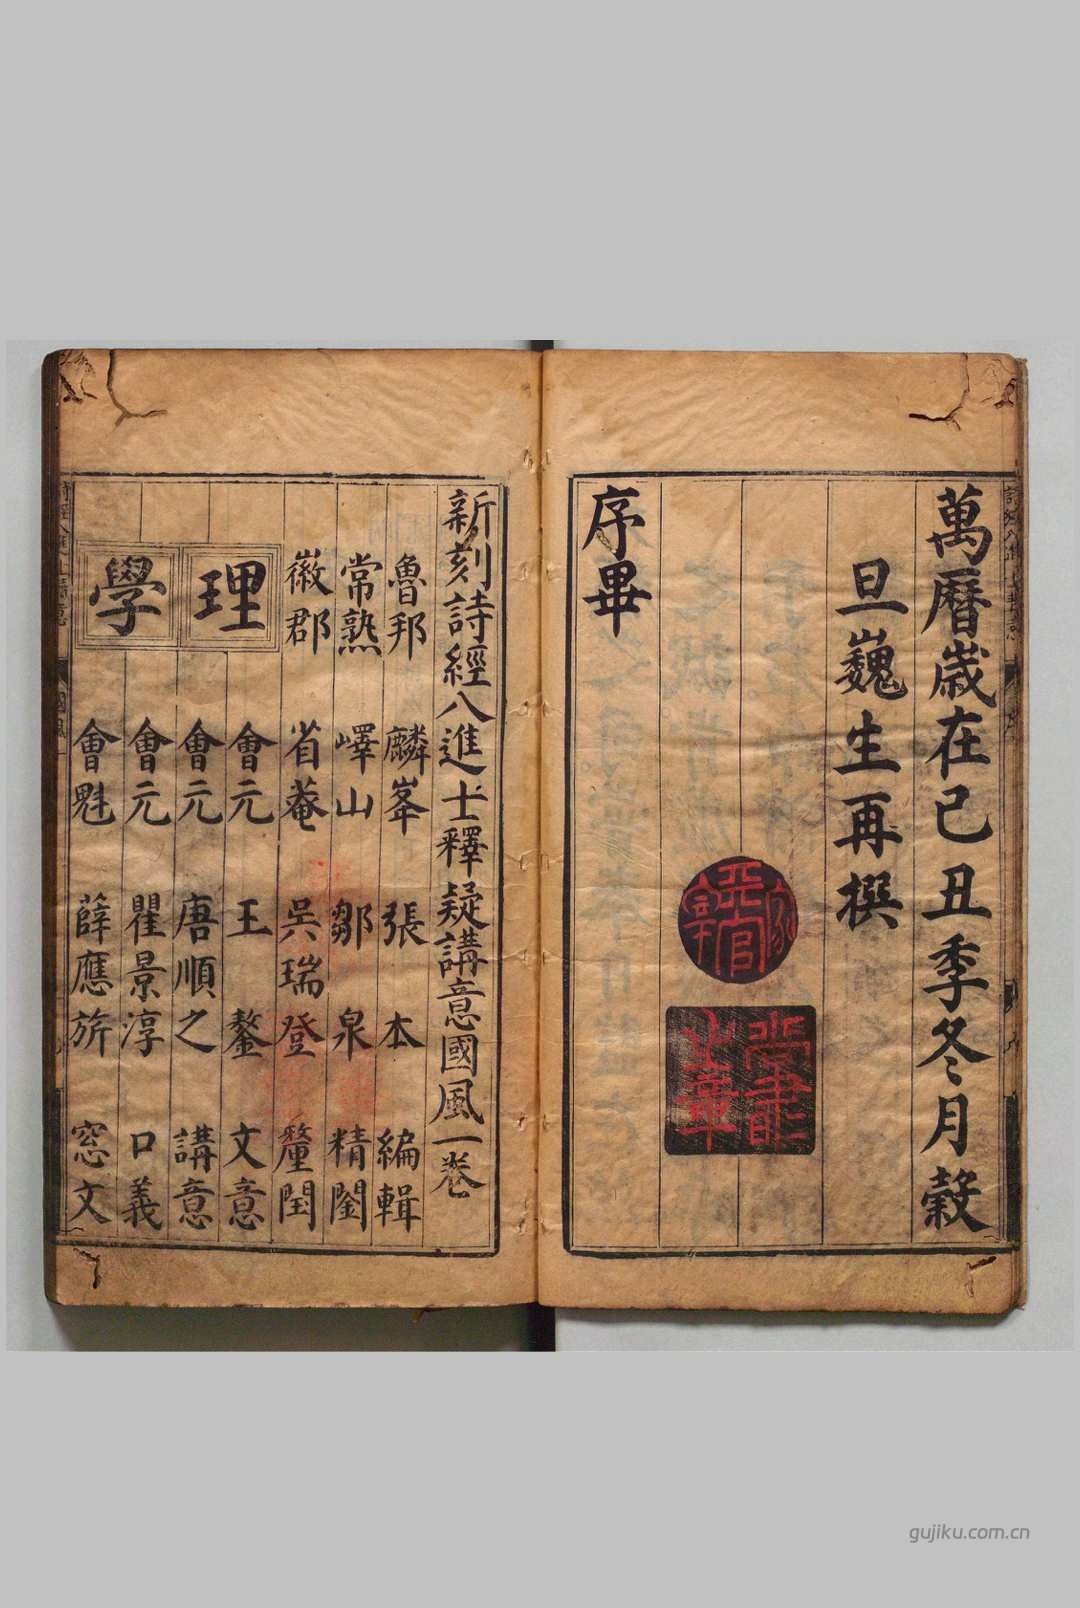 萬曆歲在己丑季冬月穀
旦巍生再撰
序畢
新刻詩經八進士釋疑講意國風一卷
魯邦 麟峯 張本 編輯
常熟 嶧山 鄒泉 精閱
徽郡 省菴 吳瑞登 釐閏
理學
會元 王鏊 文意
會元 唐順之 講意
會元 瞿景淳 口義
會魁 薛應旂 窓文
gujiku.com.cn